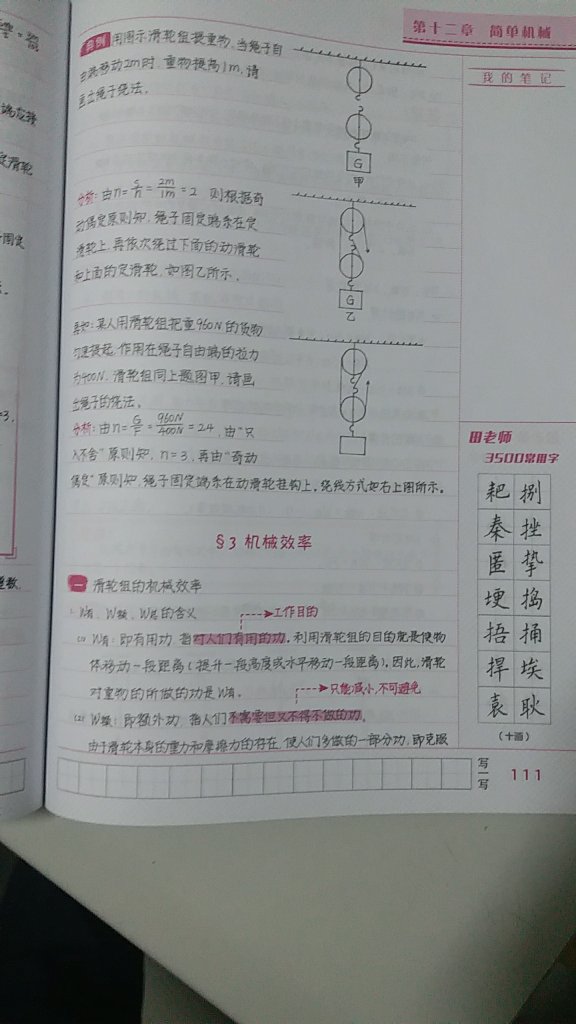 第十二章 简单机械
我的笔记
典例 用图示滑轮组提重物,当绳子自
由端移动2m时,重物提高1m,请
画出绳子绕法。
G
甲
分析:由n=s/h=2m/1m=2 则根据奇
动偶定原则知,绳子固定端系在定
滑轮上,再依次绕过下面的动滑轮
和上面的定滑轮,如图乙所示。
G
乙
易知:某人用滑轮组把重960N的货物
匀速提起,作用在绳子自由端的拉力
为400N,滑轮组同上题图甲,请画
出绳子的绕法。
分析:由n=G/F=960N/400N=2.4,由“只
入不舍”原则知,n=3,再由“奇动
偶定”原则知,绳子固定端系在动滑轮挂钩上,绕线方式如右上图所示。
§3 机械效率
一 滑轮组的机械效率
1. W有、W额、W总的含义
工作目的
(1) W有:即有用功,指对人们有用的功。利用滑轮组的目的就是使物
体移动一段距离(提升一段高度或水平移动一段距离),因此,滑轮
对重物的所做的功是W有。
只能减小,不可避免
(2) W额:即额外功,指人们不需要但又不得不做的功。
由于滑轮本身的重力和摩擦力的存在,使人们多做的一部分功,即克服
田老师
3500常用字
耙 捌
秦 挫
匿 挚
埂 捣
捂 捅
捍 埃
袁 耿
(十画)
写一写
111